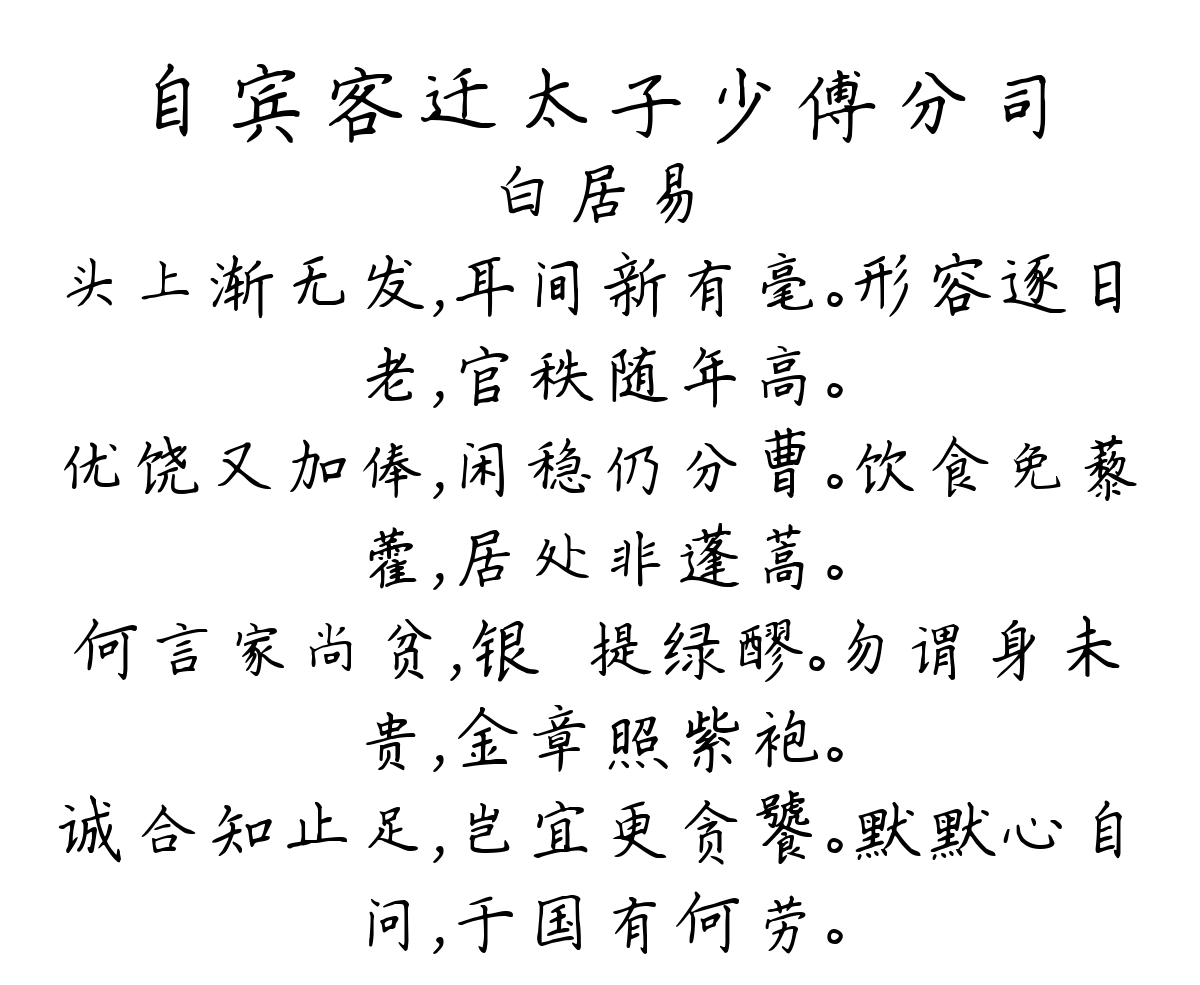 自宾客迁太子少傅分司
白居易
头上渐无发,耳间新有毫。形容逐日
老,官秩随年高。
优饶又加俸,闲稳仍分曹。饮食免藜
藿,居处非蓬蒿。
何言家尚贫,银 提绿醪。勿谓身未
贵,金章照紫袍。
诚合知止足,岂宜更贪饕。默默心自
问,于国有何劳。